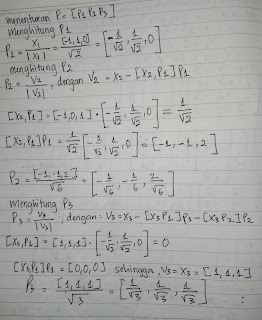 menentukan P = [P1 P2 P3]
menghitung P1
P1 = X1/|X1| = [-1,1,0]/√2 = [-1/√2, 1/√2, 0]
menghitung P2
P2 = V2/|V2|, dengan V2 = X2 - [X2,P1]P1
[X2,P1] = [-1,0,1] · [-1/√2, 1/√2, 0] = 1/√2
[X2,P1]P1 = 1/√2 [-1/√2, 1/√2, 0] = [-1,-1,2]
P2 = [-1,-1,2]/√6 = [-1/√6, -1/√6, 2/√6]
Menghitung P3
P3 = V3/|V3|, dengan: V3 = X3 - [X3P1]P1 - [X3P2]P2
[X3,P1] = [1,1,1] · [-1/√2, 1/√2, 0] = 0
[X3P1]P1 = [0,0,0] sehingga, V3 = X3 = [1,1,1]
P3 = [1,1,1]/√3 = [1/√3, 1/√3, 1/√3]